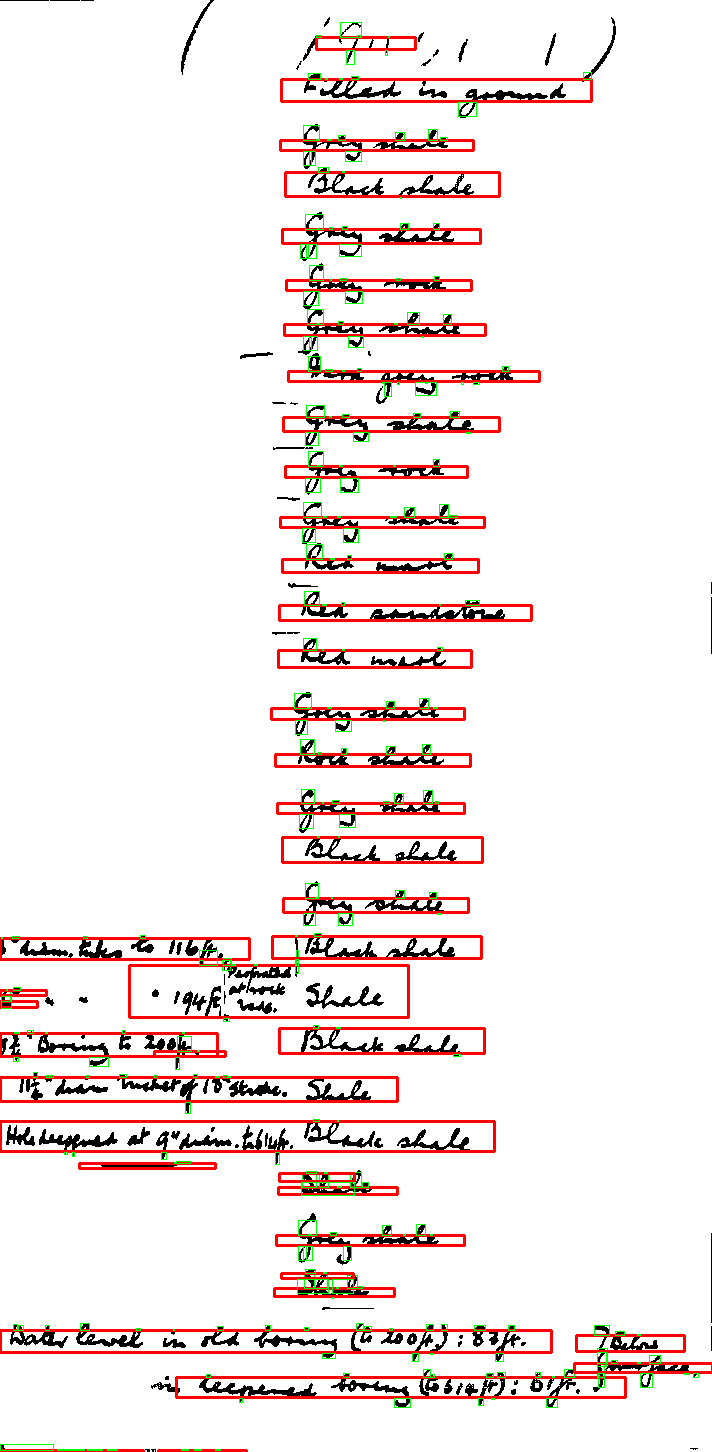 Filled in ground
Grey shale
Black shale
Grey shale
Grey rock
Grey shale
Hard grey rock
Grey shale
Grey rock
Grey shale
Red marl
Red sandstone
Red marl
Grey shale
Rock shale
Grey shale
Black shale
Grey shale
diam. tubes to 116 ft. Black shale
" " " 194 ft Perforated at rock Shale
Boring to 200 ft. Black shale
11½" diam bucket of 18" stroke. Shale
Hole deepened at 9" diam. to 614 ft. Black shale
Shale
Grey shale
Shale
Water level in old boring (to 200 ft.) : 83 ft. } Below
in deepened boring (to 614 ft) : 81 ft. } surface